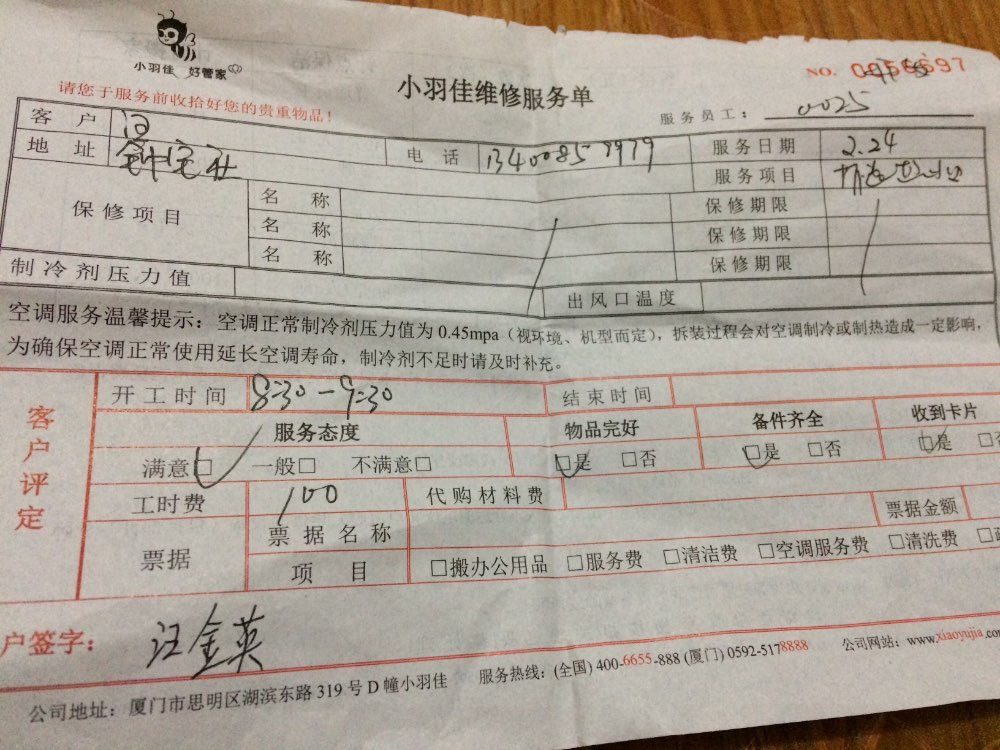 小羽佳 好管家
NO. 0056697
请您于服务前收拾好您的贵重物品!
小羽佳维修服务单
服务员工: 0025
客户 汪 电话 服务日期 2.24
地址 服务项目
保修项目 名称 保修期限
名称 保修期限
名称 保修期限
制冷剂压力值 出风口温度
空调服务温馨提示: 空调正常制冷剂压力值为 0.45mpa (视环境、机型而定), 拆装过程会对空调制冷或制热造成一定影响,
为确保空调正常使用延长空调寿命, 制冷剂不足时请及时补充。
客户评定
开工时间 8:30-9:30 结束时间
服务态度 物品完好 备件齐全 收到卡片
满意□ 一般□ 不满意□ □是 □否 □是 □否 □是 □否
工时费 100 代购材料费
票据 票据名称 票据金额
项目 □搬办公用品 □服务费 □清洁费 □空调服务费 □清洗费
户签字: 汪金英
公司地址: 厦门市思明区湖滨东路 319 号 D 幢小羽佳 服务热线: (全国) 400-6655-888 (厦门) 0592-5178888 公司网站: www.xiaoyujia.co